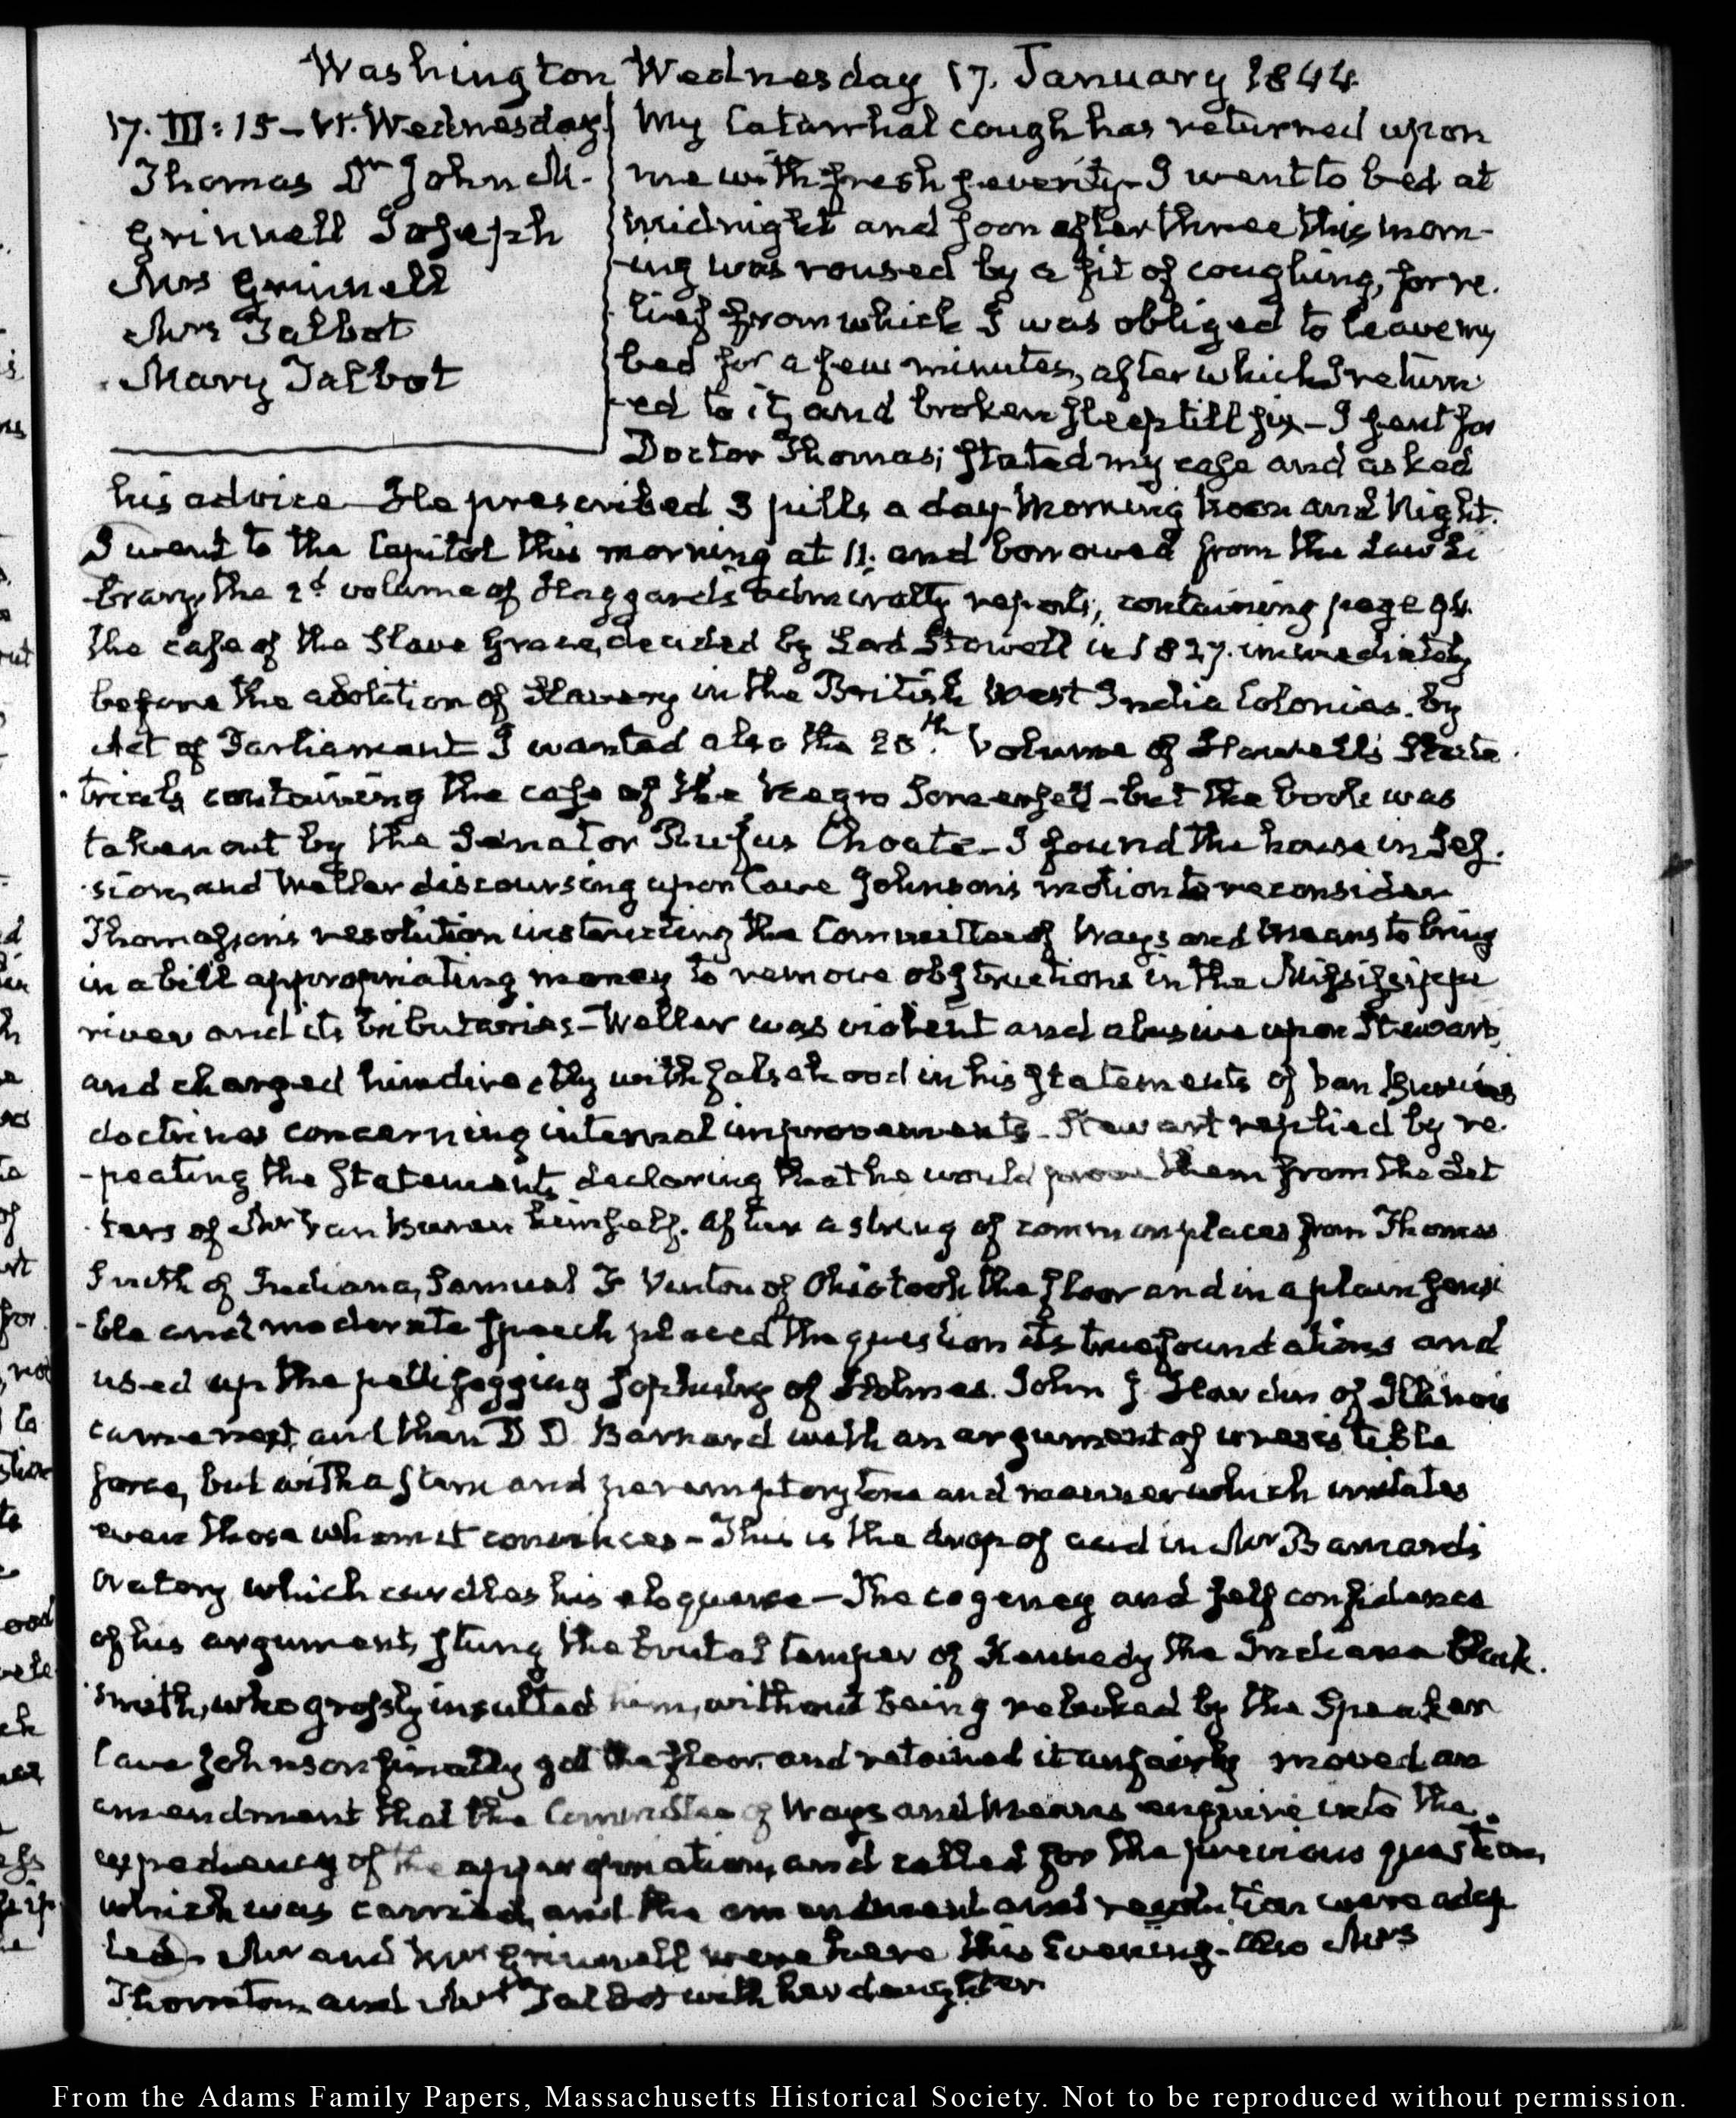 Washington Wednesday 17. January 1844.
17. III:15 – VI. Wednesday
Thomas Dr John M.
Grinnell Joseph
Mrs Grinnell
Mrs Talbot
Mary Talbot
My Catarrhal cough has returned upon
me with fresh severity – I went to bed at
midnight and soon after three this morn-
-ing was roused by a fit of coughing, for re.
lief from which I was obliged to leave my
bed for a few minutes, after which I return
-ed to it, and broken sleep till six – I sent for
Doctor Thomas; stated my case and asked
his advice – He prescribed 3 pills a day – Morning Noon and Night.
I went to the Capitol this morning at 11. and borrowed from the Law Li
-brary, the 2d volume of Haggard's Admiralty reports, containing page 94.
the case of the Slave Grace, decided by Lord Stowell in 1827. immediately
before the abolition of Slavery in the British West India Colonies. by
Act of Parliament I wanted also the 20th. Volume of Howell's State
trials containing the case of the Negro Somerset – but the book was
taken out by the Senator Rufus Choate – I found the house in Ses.
sion, and Weller discoursing upon Cave Johnson's motion to reconsider
Thomasson's resolution instructing the Committee of Ways and Means to bring
in a bill appropriating money to remove obstructions in the Mississippi
river and its tributaries – Weller was violent and abusive upon Stewart,
and charged him directly with falsehood in his statements of Van Buren's
doctrines concerning internal improvements – Stewart replied by re.
-peating the Statements, declaring that he would prove them from the Let
ters of Mr Van Buren himself. After a string of common places from Thomas
Smith of Indiana, Samuel F Vinton of Ohio took the floor and in a plain sensi
-ble and moderate speech placed the question its true foundations and
used up the pettifogging sophistry of Holmes. John J. Hardin of Illinois
came next, and then D D Barnard with an argument of irresistible
force, but with a stern and peremptory tone and manner which irritates
even those whom it convinces – This is the drop of acid in Mr Barnard's
oratory which curdles his eloquence – The cogency and self confidence
of his argument, stung the brutal temper of Kennedy the Indiana Black.
smith, who grossly insulted him, without being rebuked by the Speaker
Cave Johnson finally got the floor, and retained it unfairly moved an
amendment that the Committee of Ways and Means enquire into the
expediency of the appropriation, and called for the previous question,
which was carried, and the amendment and resolution were adop
ted – Mr and Mrs Grinnell were here this Evening – Also Mrs
Thornton, and Mrs Talbot with her daughter
From the Adams Family Papers, Massachusetts Historical Society. Not to be reproduced without permission.